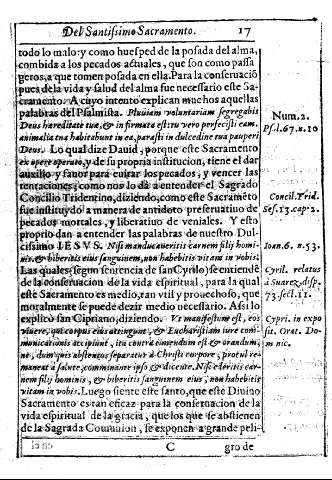 Del Santissimo Sacramento. 17
todo lo malo: y como huesped de la posada del alma,
combida a los pecados actuales, que son como passa
geros, a que tomen posada en ella. Para la conseruaciõ
pues de la vida y salud del alma fue necessario este Sa
cramento. A cuyo intento explican muchos aquellas
palabras del Psalmista. Pluuiam voluntariam segregabis
Deus hæreditate tuæ, & infirmata est tu vero perfecisti eam,
animalia tua habitabunt in ea, parasti in dulcedine tua pauperi
Deus. Lo qual dize Dauid, porque este Sacramento
ex opere operato, y de su propria institucion, tiene el dar
auxilio y fauor para euitar los pecados, y vencer las
tentaciones, como nos lo dà a entender el Sagrado
Concilio Tridentino, diziendo, como este Sacrameto
fue instituydo a manera de antidoto preseruatiuo de
pecados mortales, y liberatiuo de veniales. Y esto
proprio dan a entender las palabras de nuestro Dul-
cissimo IESVS. Nisi manducaueritis carnem filij homi-
nis, & biberitis eius sanguinem, non habebitis vitam in vobis.
Las quales (segun sentencia de san Cyrilo) se entiẽde
de la conseruacion de la vida espiritual, para la qual
este Sacramento es medio, tan vtil y prouechoso, que
moralmente se puede dezir medio necessario. Assi lo
explicò san Cipriano, diziendo: Vt manifestum est, eos
viuere, qui corpus eius attingunt, & Eucharistiam iure com-
municationis accipiunt, ita contra timendum est & orandum,
ne, dum quis abstentus separatur à Christi corpore, procul re-
maneat à salute, comminante ipso & dicente. Nisi ederitis car-
nem filij hominis, & biberitis sanguinem eius, non habebitis
vitam in vobis. Luego siente este santo, que este Diuino
Sacramento es tan eficaz para la conseruacion de la
vida espiritual de la gracia, que los que se abstienen
de la Sagrada Comunion, se exponen a grande peli-
C gro de
Num. 2.
Ps. 67. n. 10
Concil. Trid.
Ses. 13. cap. 2.
Ioan. 6. n. 53.
Cyril. relatus
à Suarez, disp.
73. sect. 11.
Cypri. in expo
sit. Orat. Do-
minic.